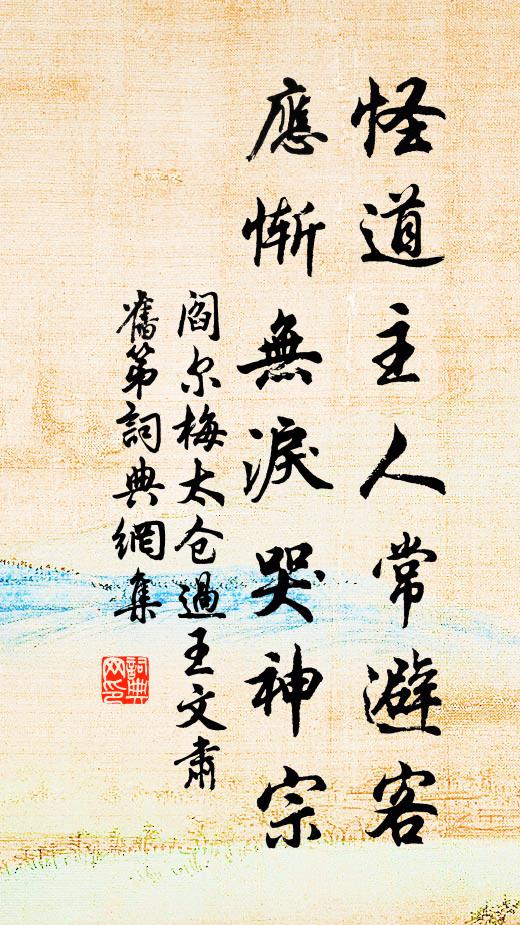 怪道主人常避客
應慚無淚哭神宗
阎尔梅太仓過王文肅
舊第詞典網集
詞典
网印